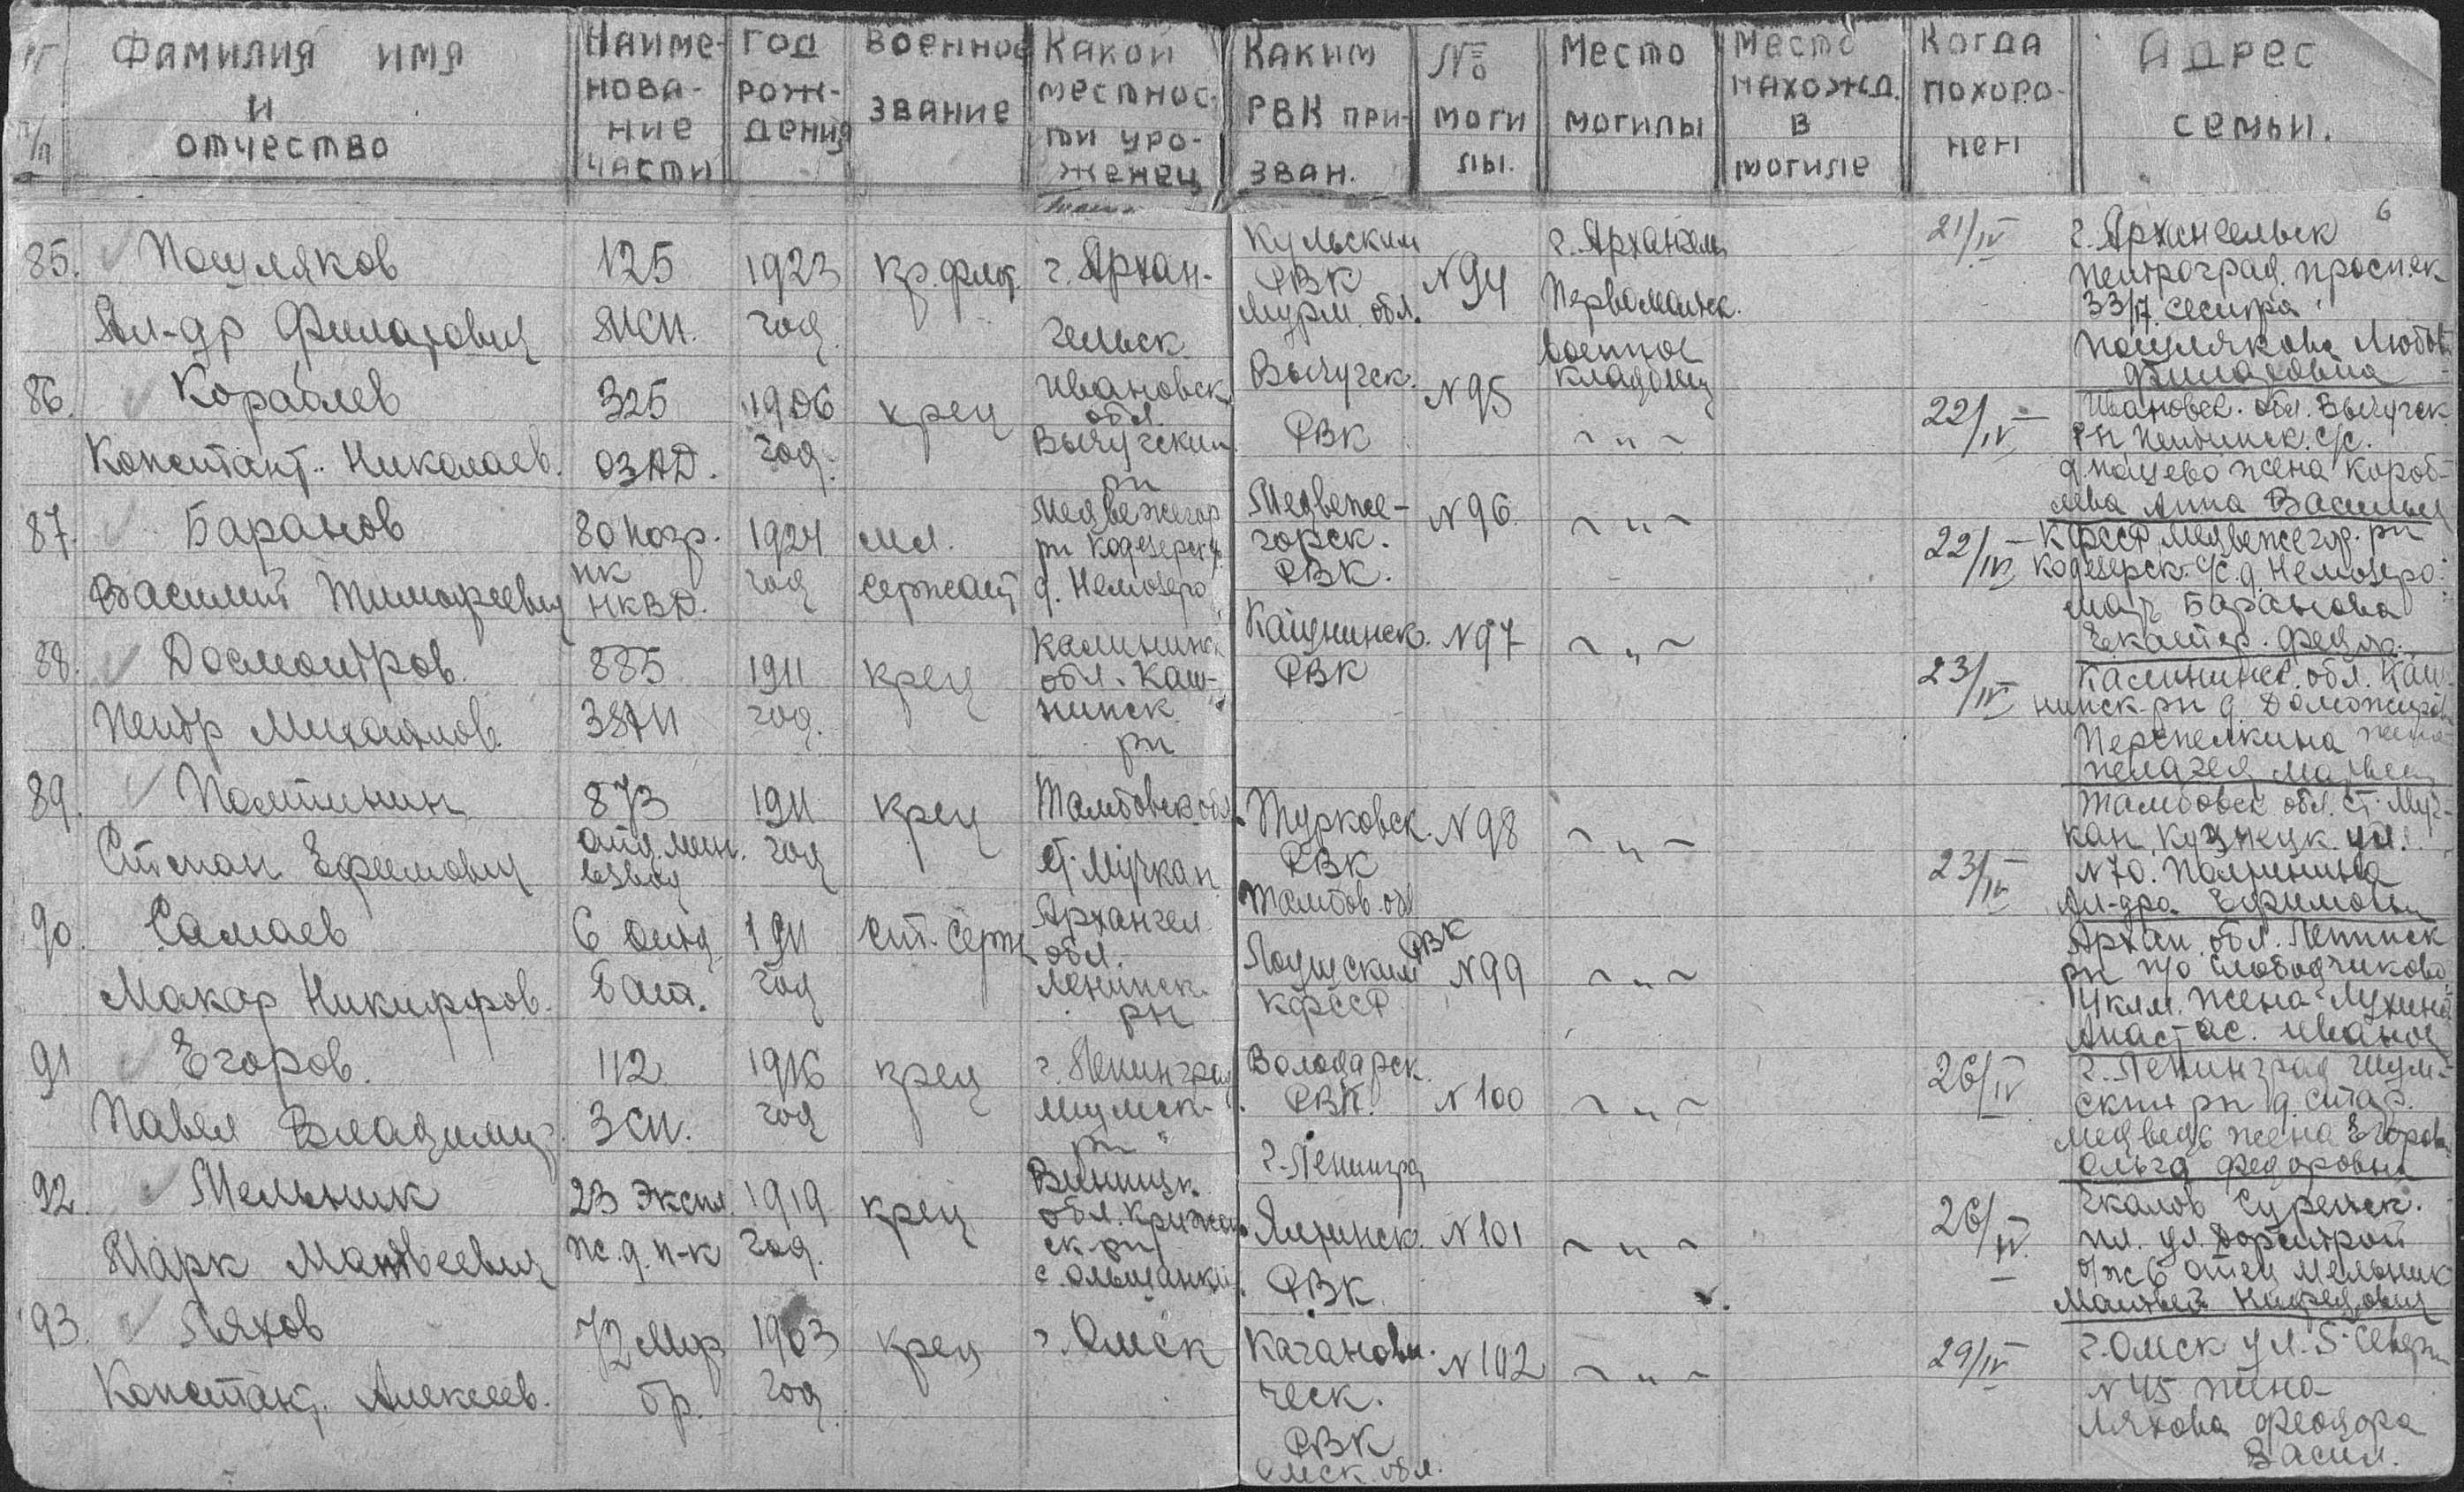 № п/п
Фамилия имя
и
отчество
Наиме-
нова-
ние
части
Год
рож-
дения
Военное
звание
Какой
местнос-
ти уро-
женец
Каким
РВК при-
зван.
№
моги
лы.
Место
могилы
Место
нахожд.
в
могиле
Когда
похоро-
нен
Адрес
семьи.
6
85.
Ал-др
125
1923
год
кр. флт.
г. Архан-
гельск
РВК
Мурм. обл.
N94
г. Архангельск
Первомайск.
военное
кладбищ
21/IV
г. Архангельск
Петроград. проспек
33/17. сестра
86.
Кораблев
Констант. Николаев.
325
ОЗАД.
1906
год.
крец
Ивановск.
обл.
Вычугский
рн
Вычугск.
РВК
N95
~ " ~
22/IV
Ивановск. обл. Вычугск.
жена Кораб-
лева Анна Васильев
87.
Баранов
Василий Тимофеевич
80 погр.
пк
НКВД.
1924
год
мл.
сержант
Медвежегор
рн
д. Немозеро
Медвеже-
горск.
РВК.
N96
~ " ~
22/IV
КФССР, Медвежегор. рн
с/с. д. Немозеро
мать Баранова
Екатер. Федор.
88.
Досмотров.
Петр Михайлов.
885
ЗЗАП
1911
год.
крец
Калининск
обл. Каш-
нинск
рн
РВК
N97
~ " ~
23/IV
Калининск. обл. Каш-
нинск рн д.
Перепелкина жена
Пелагея Матвеев
89.
Полтинин
Степан Ефимович
873
отд. мин.
взвод
1911
год
крец
Тамбовск обл.
ст. Мучкап
Турковск.
РВК
Тамбов. обл
N98
~ " ~
23/IV
Тамбовск обл. ст. Муч-
кап, Кузнецк. ул.
N70. Полтинина
Ал-дра Ефимовн
90.
Самаев
Макар Никифоров.
6 отд
Бат.
1911
год
ст. серж
Архангел
обл.
Ленинск.
рн
Лоухским РВК
КФССР
N99
~ " ~
Архан. обл. Ленинск
рн п/о Слободчиково
жена
Анастас. Иванов
91
Егоров.
Павел Владимир.
112
ЗСП.
1916
год
крец
г. Ленинград
Шумск.
рн
Володарск.
РВК.
г. Ленинград
N100
~ " ~
26/IV
г. Ленинград Шум-
ский рн д. Стар.
Медведь жена Егорова
Ольга Федоровна
92.
Мельник
Марк Матвеевич
23 Экспл.
ж.д. п-к
1919
год.
крец
Винницк.
обл.
ск. рн
с. Ольшанки
РВК
N101
~ " ~
26/IV.
Чкалов
отец Мельник
Матвей
93.
Ляхов
Констант. Алексеев.
72 Мор
бр.
1903
год
крец
г. Омск
Каганови-
ческ.
РВК
Омск. обл.
N102
~ " ~
29/IV
г. Омск ул. 5-Северн
N45 жена
Ляхова Феодора
Васил.